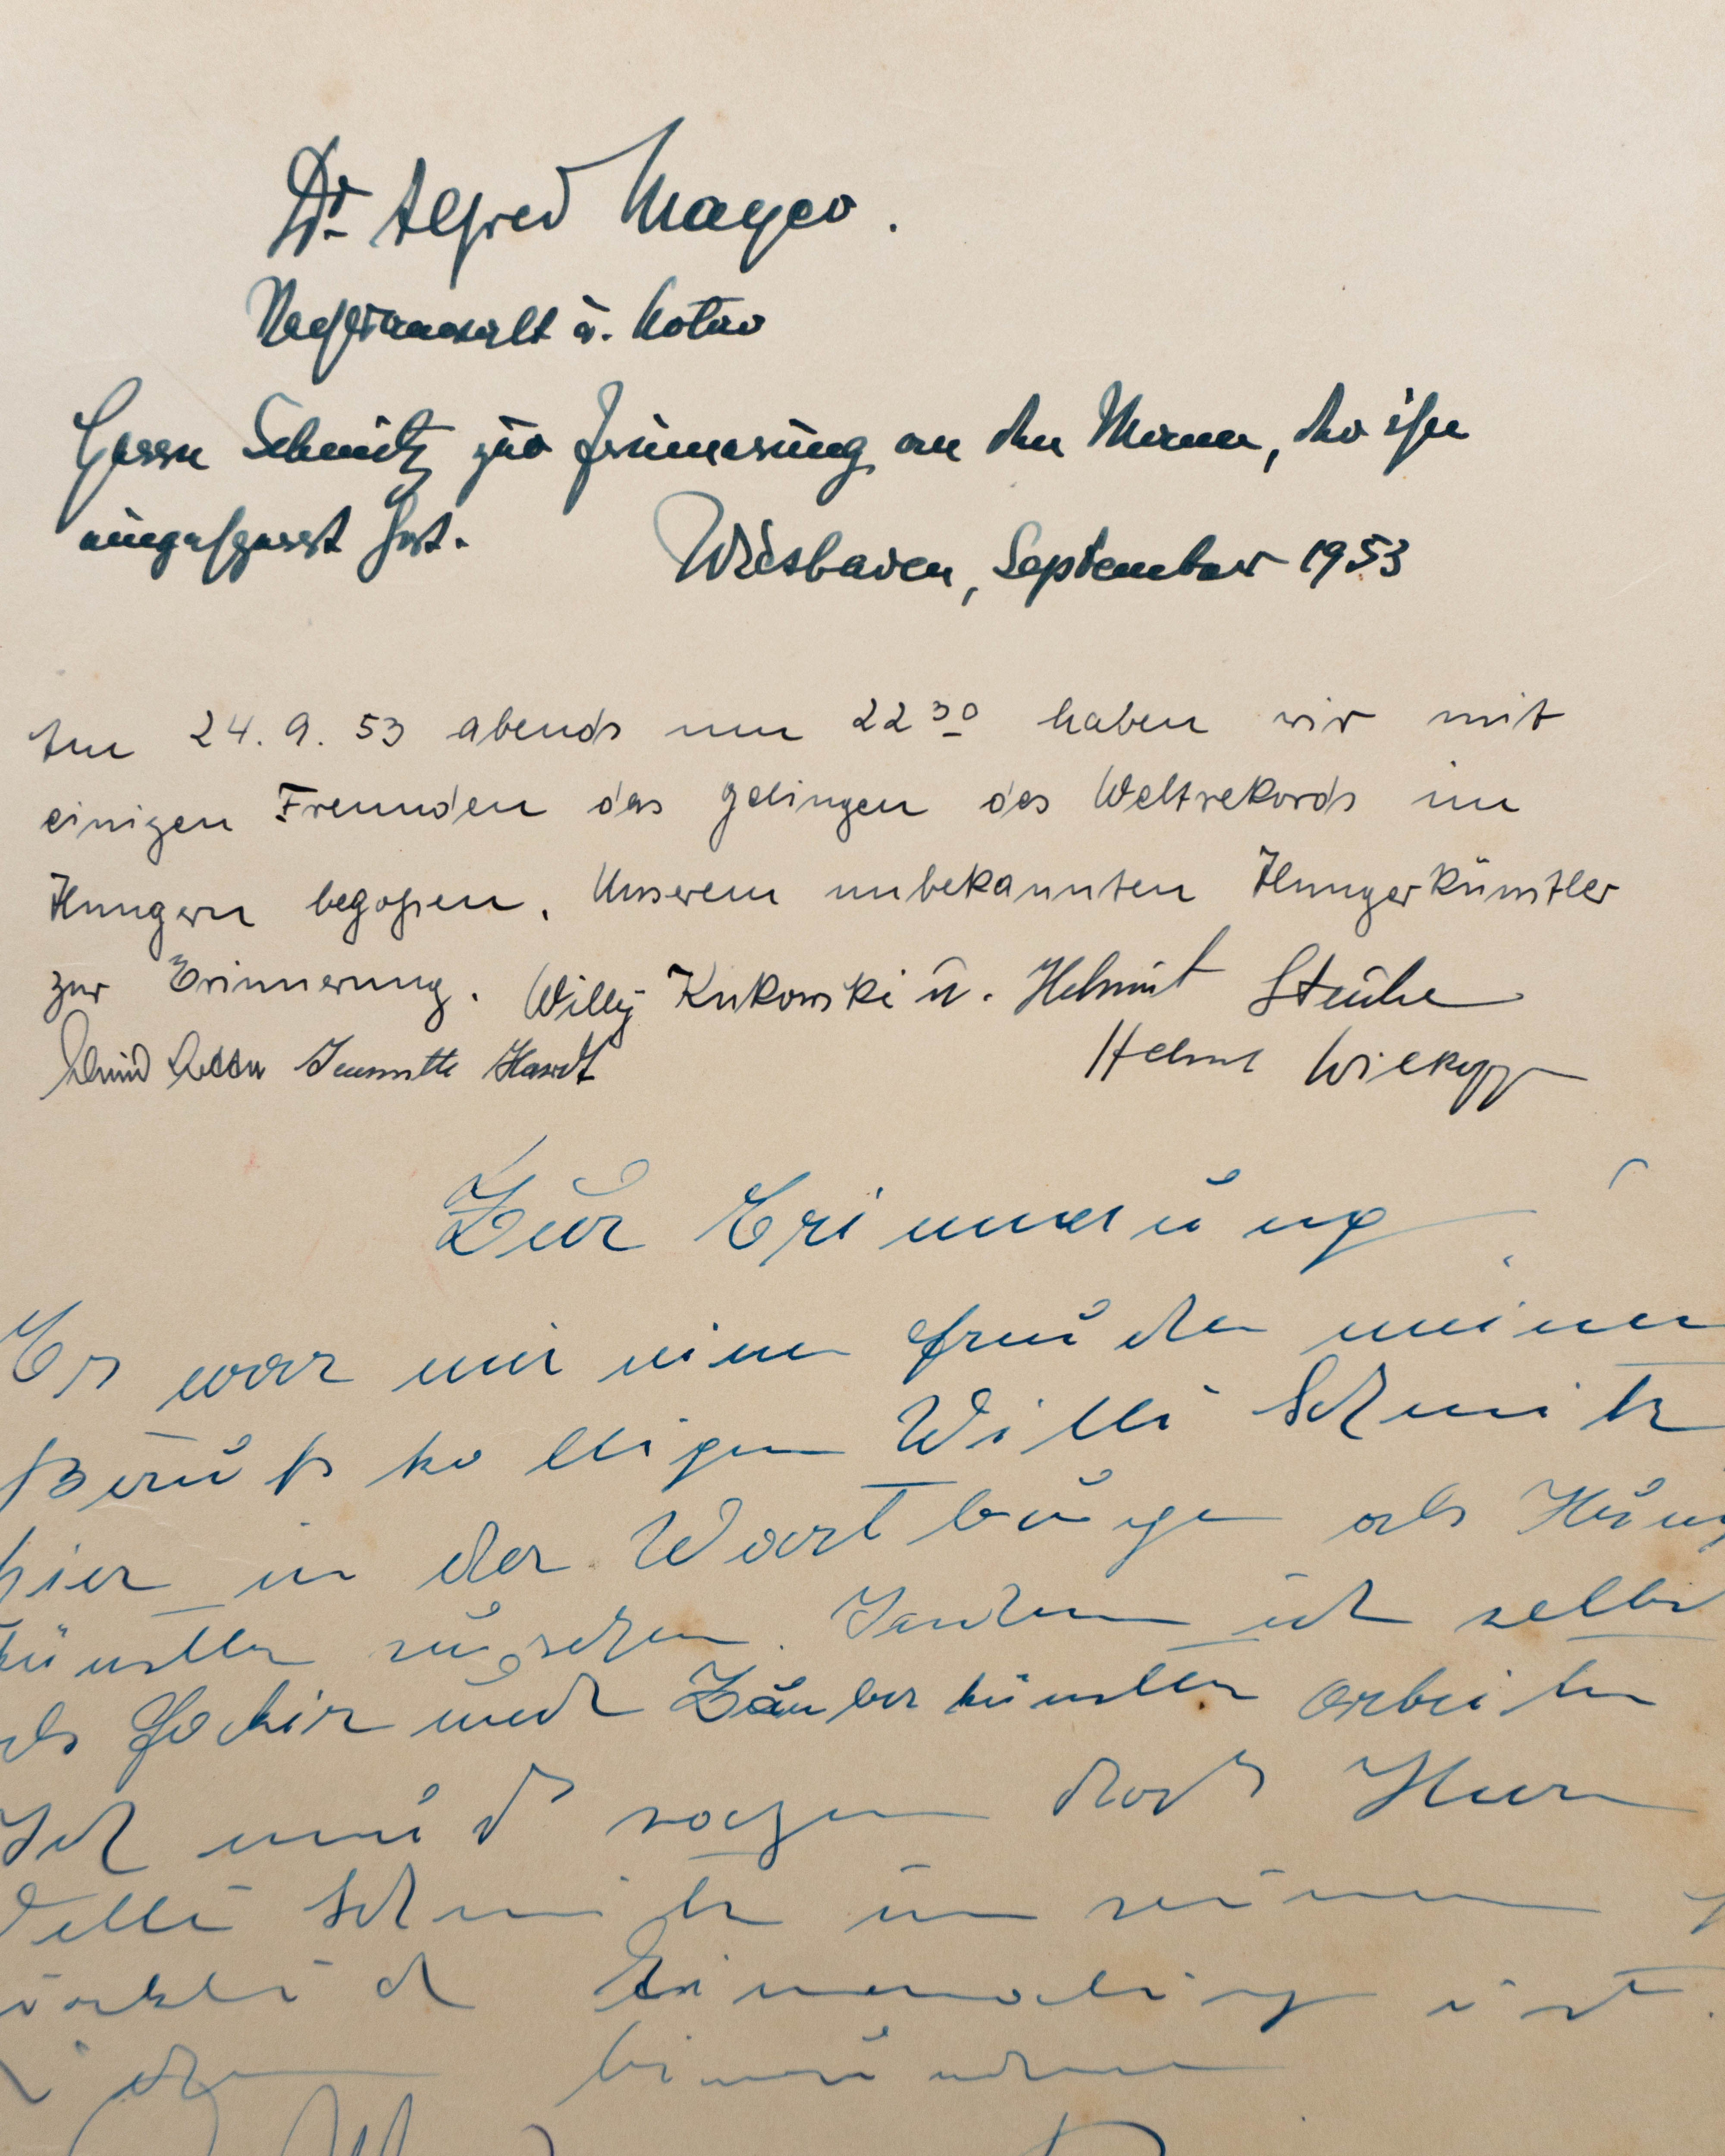 Dr. Alfred Mayer.
Rechtsanwalt u. Notar
Herrn Schmitz zur Erinnerung an den Mann, der ihn
eingesperrt hat. Wiesbaden, September 1953
Am 24. 9. 53 abends um 22³⁰ haben wir mit
einigen Freunden das gelingen des Weltrekords im
Hungern begoßen. Unserem unbekannten Hungerkünstler
zur Erinnerung. Willy Kukowski u. Helmut Stube
Jeanette Hardt Helmut
Zur Erinnerung
Es war mir eine Freude meinen
Berufskollegen Willi Schmitz
hier in der Wartburg als Hung
künstler zu sehen. ich selbst
als Fakir und Zauberkünstler arbeite
Ich muß sagen das Herr
Willi Schmitz in seinem
wirklich Einmalig ist.